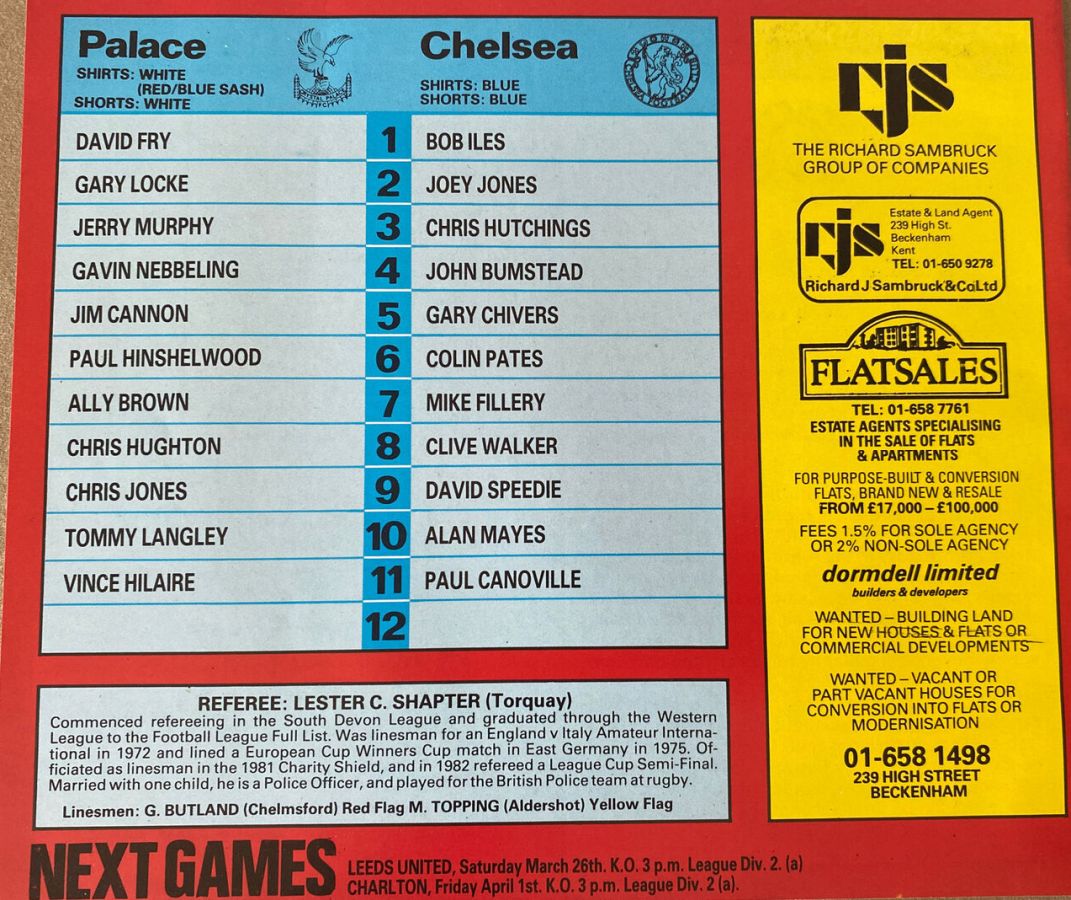 Palace
SHIRTS: WHITE
(RED/BLUE SASH)
SHORTS: WHITE
CRYSTAL PALACE
F.C.
Chelsea
SHIRTS: BLUE
SHORTS: BLUE
CHELSEA FOOTBALL
DAVID FRY 1 BOB ILES
GARY LOCKE 2 JOEY JONES
JERRY MURPHY 3 CHRIS HUTCHINGS
GAVIN NEBBELING 4 JOHN BUMSTEAD
JIM CANNON 5 GARY CHIVERS
PAUL HINSHELWOOD 6 COLIN PATES
ALLY BROWN 7 MIKE FILLERY
CHRIS HUGHTON 8 CLIVE WALKER
CHRIS JONES 9 DAVID SPEEDIE
TOMMY LANGLEY 10 ALAN MAYES
VINCE HILAIRE 11 PAUL CANOVILLE
12
REFEREE: LESTER C. SHAPTER (Torquay)
Commenced refereeing in the South Devon League and graduated through the Western
League to the Football League Full List. Was linesman for an England v Italy Amateur Interna-
tional in 1972 and lined a European Cup Winners Cup match in East Germany in 1975. Of-
ficiated as linesman in the 1981 Charity Shield, and in 1982 refereed a League Cup Semi-Final.
Married with one child, he is a Police Officer, and played for the British Police team at rugby.
Linesmen: G. BUTLAND (Chelmsford) Red Flag M. TOPPING (Aldershot) Yellow Flag
NEXT GAMES
LEEDS UNITED, Saturday March 26th. K.O. 3 p.m. League Div. 2. (a)
CHARLTON, Friday April 1st. K.O. 3 p.m. League Div. 2 (a).
rjs
THE RICHARD SAMBRUCK
GROUP OF COMPANIES
rjs
Estate & Land Agent
239 High St.
Beckenham
Kent
TEL: 01-650 9278
Richard J Sambruck & Co Ltd
FLATSALES
TEL: 01-658 7761
ESTATE AGENTS SPECIALISING
IN THE SALE OF FLATS
& APARTMENTS
FOR PURPOSE-BUILT & CONVERSION
FLATS, BRAND NEW & RESALE
FROM £17,000 – £100,000
FEES 1.5% FOR SOLE AGENCY
OR 2% NON-SOLE AGENCY
dormdell limited
builders & developers
WANTED – BUILDING LAND
FOR NEW HOUSES & FLATS OR
COMMERCIAL DEVELOPMENTS
WANTED – VACANT OR
PART VACANT HOUSES FOR
CONVERSION INTO FLATS OR
MODERNISATION
01-658 1498
239 HIGH STREET
BECKENHAM